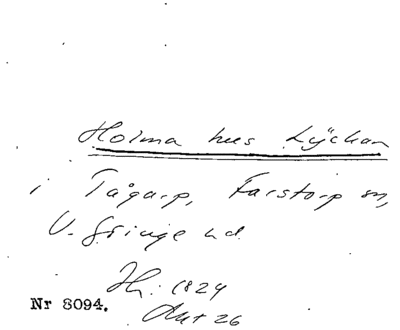 Holma hus Lyckan
i Tågarp, Farstorp sn,
V. Göinge hd.
Hh: 1824
Akt 26
Nr 8094.